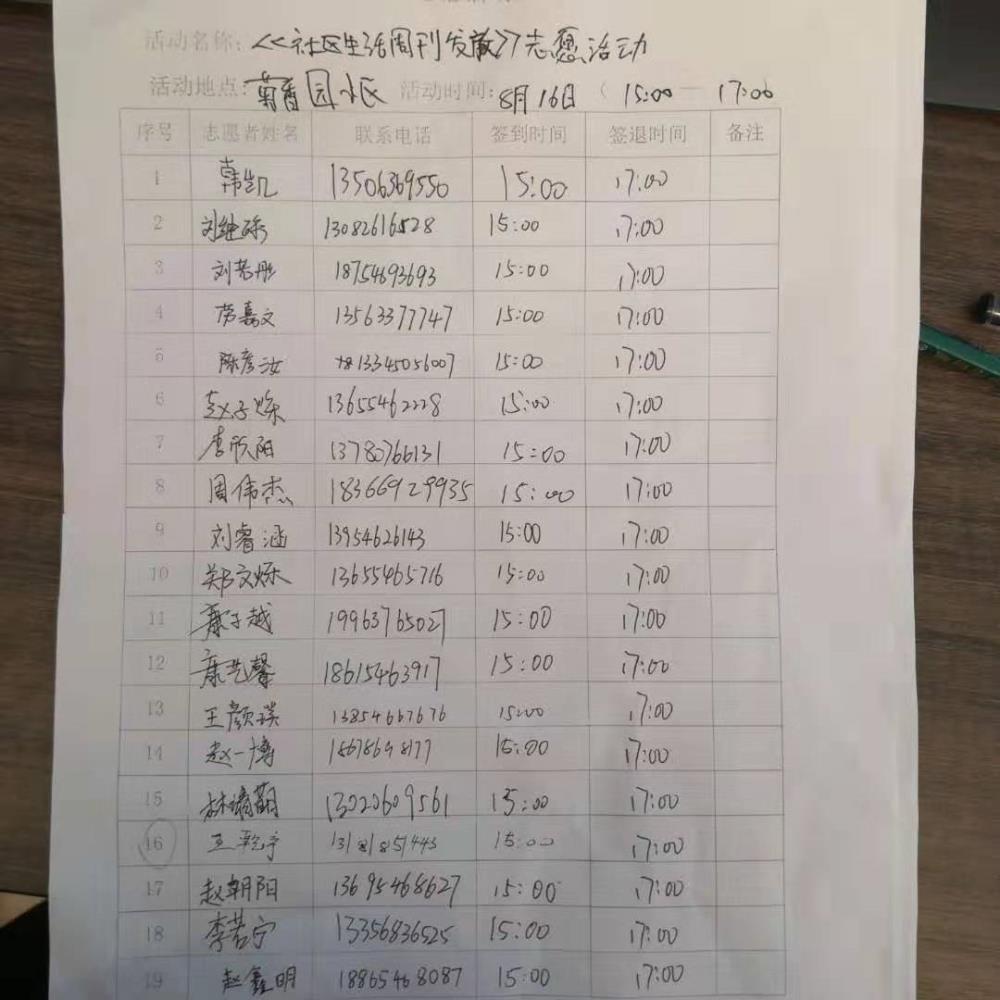 活动名称：《社区生活周刊发放》志愿活动
活动地点：菊香园小区 活动时间：8月16日（15:00—17:00
序号 志愿者姓名 联系电话 签到时间 签退时间 备注
1 韩凯 13506369550 15:00 17:00
2 13082616528 15:00 17:00
3 刘若彤 18754693693 15:00 17:00
4 嘉文 13563377747 15:00 17:00
5 陈彦汝 13345056007 15:00 17:00
6 赵子烁 13655462228 15:00 17:00
7 李欣阳 13780766131 15:00 17:00
8 周伟杰 18366929935 15:00 17:00
9 刘睿涵 13954626143 15:00 17:00
10 郑文烁 13655465716 15:00 17:00
11 康子越 19963765027 15:00 17:00
12 康艺馨 18615463917 15:00 17:00
13 王颜 13854667676 15:00 17:00
14 赵一博 15:00 17:00
15 林 13020609561 15:00 17:00
16 王乾宇 13181851443 15:00 17:00
17 赵朝阳 13695468627 15:00 17:00
18 李若宁 13356836525 15:00 17:00
19 赵鑫明 18865468087 15:00 17:00